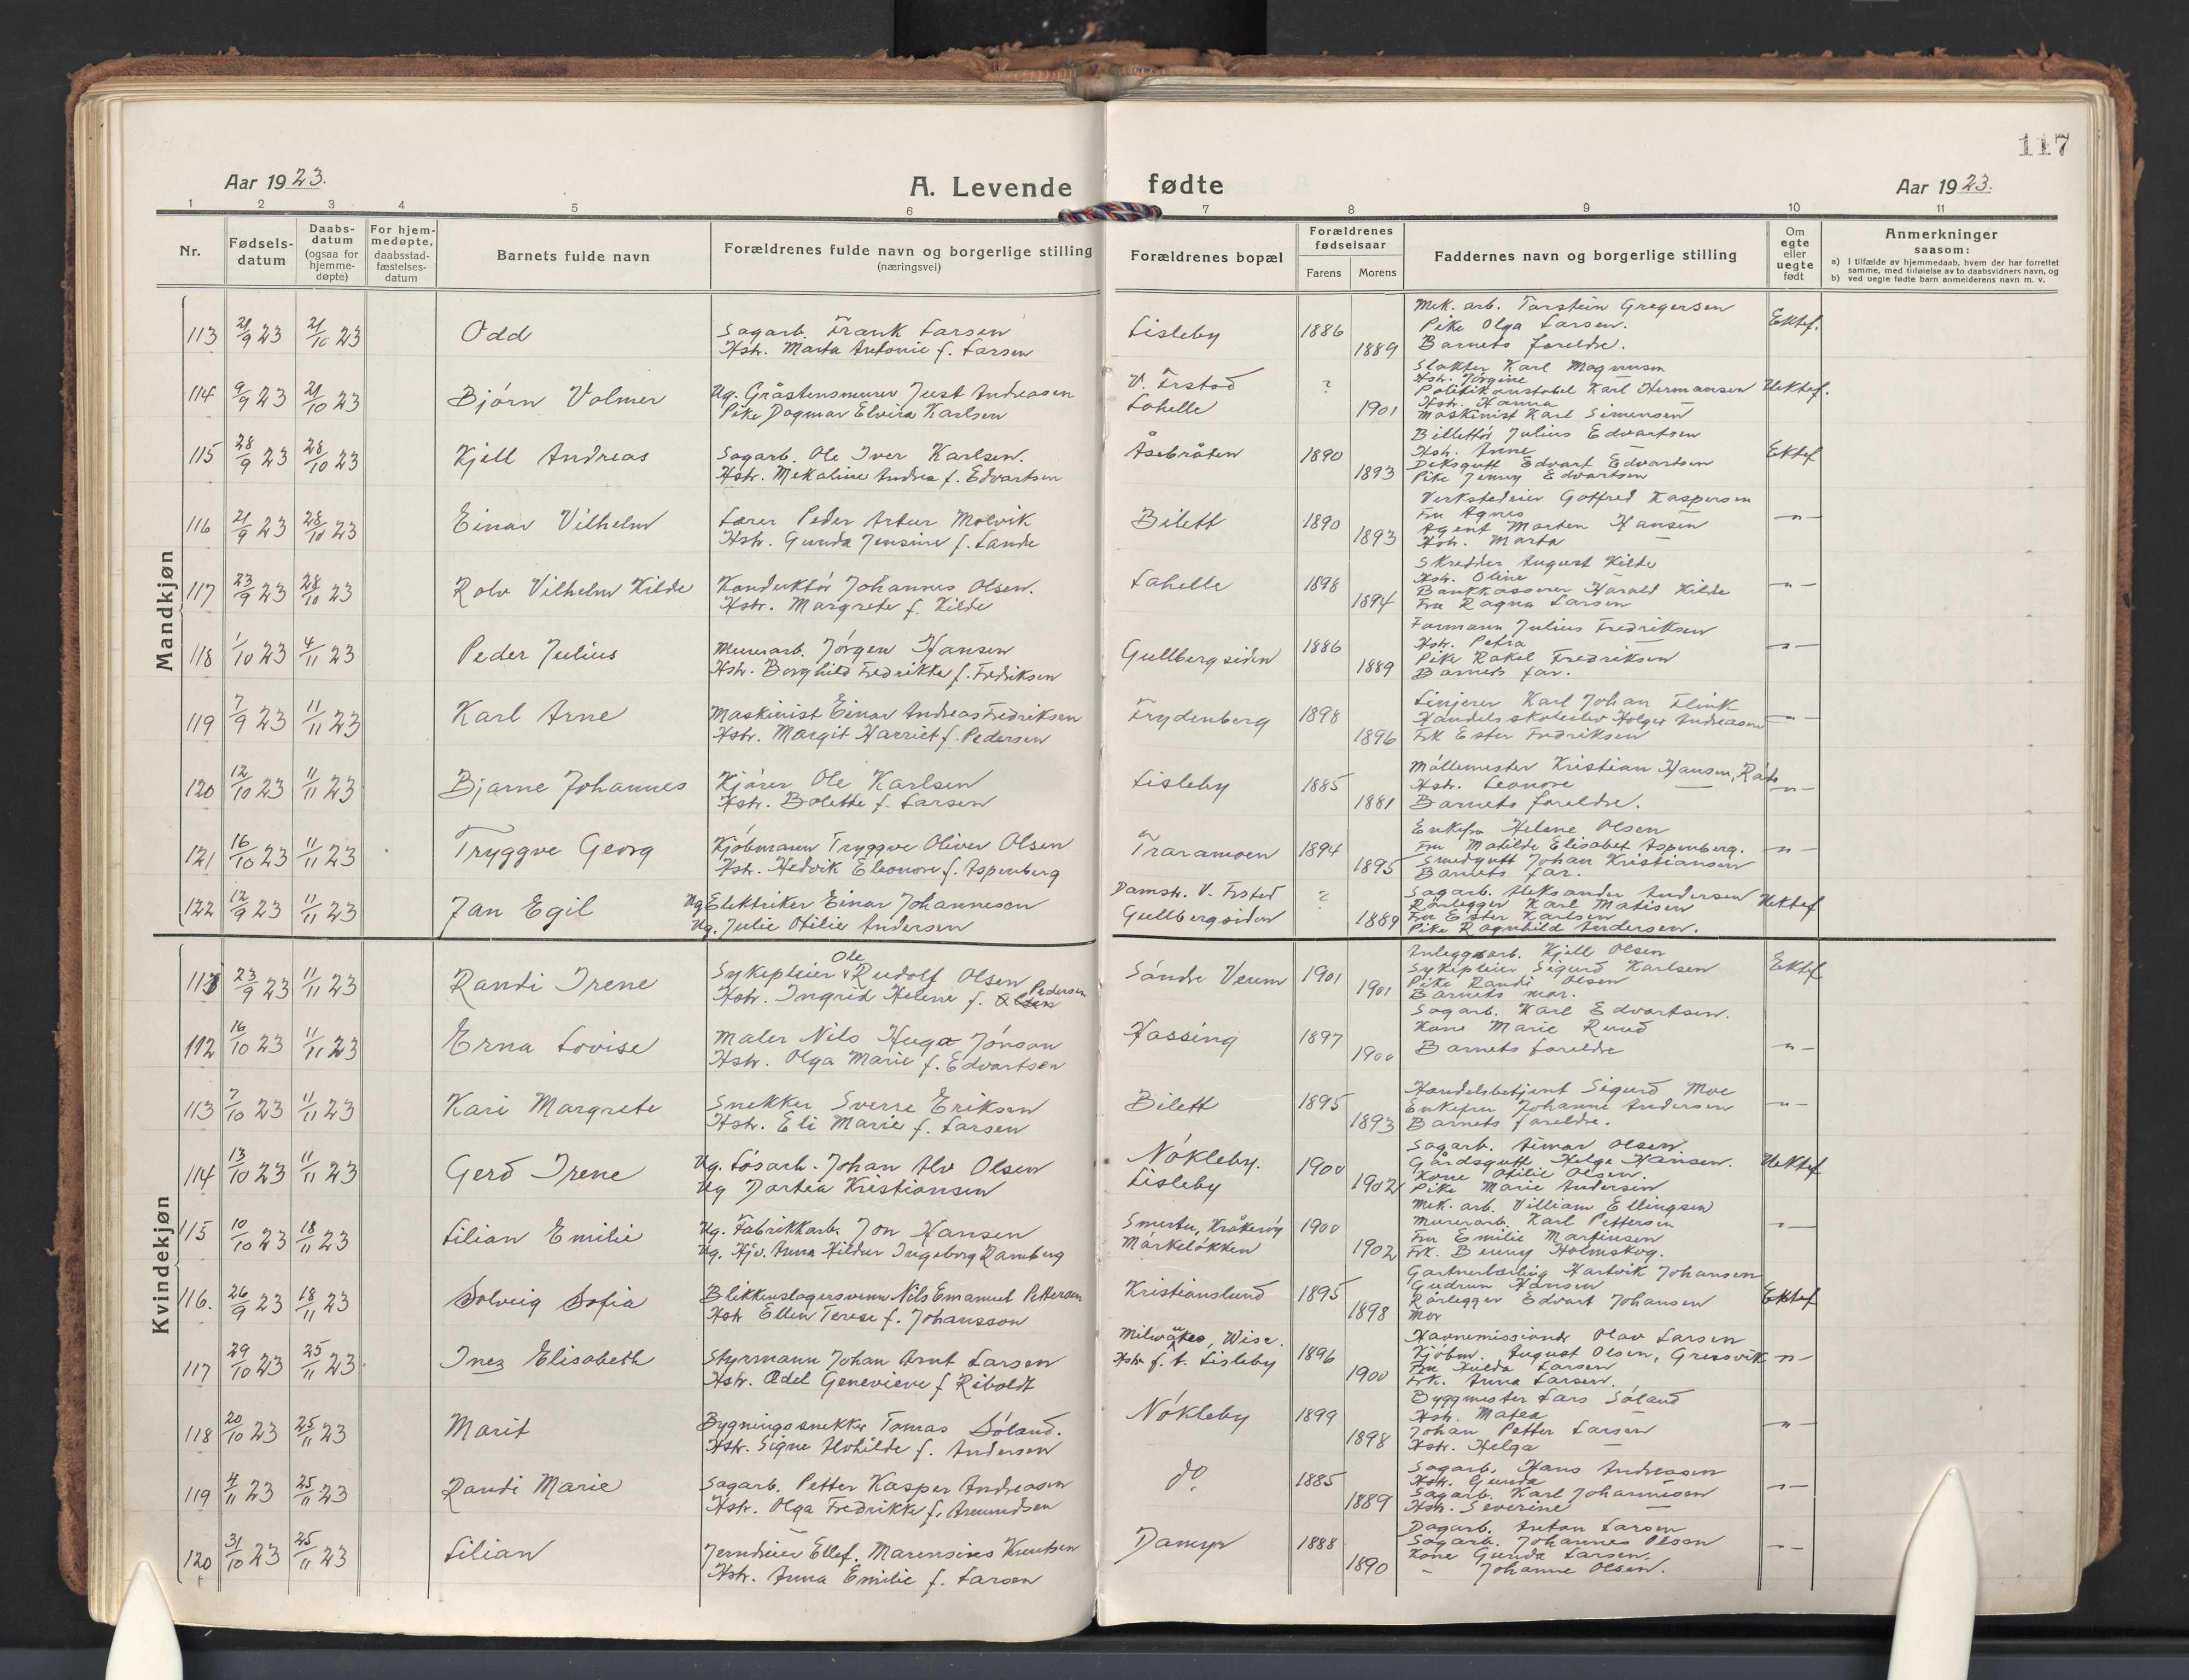 117
Aar 1923.
A. Levende fødte
Aar 1923.
1 2 3 4 5 6 7 8 9 10 11
Nr.
Fødsels-
datum
Daabs-
datum
(ogsaa for
hjemme-
døpte)
For hjem-
medøpte,
daabsstad-
fæstelses-
datum
Barnets fulde navn
Forældrenes fulde navn og borgerlige stilling
(næringsvei)
Forældrenes bopæl
Forældrenes
fødselsaar
Farens Morens
Faddernes navn og borgerlige stilling
Om
egte
eller
uegte
født
Anmerkninger
saasom:
a) i tilfælde av hjemmedaab, hvem der har forrettet
samme, med tilføielse av to daabsvidners navn, og
b) ved uegte fødte barn anmelderens navn m. v.
Mandkjøn
113 21/9 23 21/10 23 Odd
Sagarb. Frank Larsen
Hstr. Marta Antonie f. Larsen
Lisleby 1886
1889
Mek. arb. Torstein Gregersen
Pike Olga Larsen.
Barnets foreldre.
Ektef.
114 9/9 23 21/10 23 Bjørn Volmer
Ug. Gråstensmurer Just Andreasen
Pike Dagmar Elvira Karlsen
V. Frstad
Lahelle
?
1901
Slakter Karl Magnusen
Hstr. Jørgine —
Politikonstabel Karl Hermansen
Hstr. Hanna —
Maskinist Karl Simensen
Uektef.
115 28/9 23 28/10 23 Kjell Andreas
Sagarb. Ole Iver Karlsen.
Hstr. Mekaline Andrea f. Edvartsen
Åsebråten 1890
1893
Billettør Julius Edvartsen
Hstr. Anne —
Deksgutt Edvart Edvartsen
Pike Jenny Edvartsen
Ektef
116 21/9 23 28/10 23 Einar Vilhelm
Lærer Peder Artur Molvik
Hstr. Gunda Jensine f. Lande
Bilett 1890
1893
Verkstedeier Gotfred Kaspersen
Fru Agnes —
Agent Marten Hansen
Hstr. Marta —
—"—
117 23/9 23 28/10 23 Rolv Vilhelm Kilde
Konduktør Johannes Olsen.
Hstr. Margrete f. Kilde
Lahelle 1898
1894
Skredder August Kilde
Hstr. Oline
Bankkasserer Harald Kilde
Fru Ragna Larsen
—"—
118 1/10 23 4/11 23 Peder Julius
Murerarb. Jørgen Hansen
Hstr. Borghild Fredrikke f. Fredriksen
Gullbergsiden 1886
1889
Formann Julius Fredriksen
Hstr. Petra —
Pike Rakel Fredriksen
Barnets far.
—"—
119 7/9 23 11/11 23 Karl Arne
Maskinist Einar Andreas Fredriksen
Hstr. Margit Harriet f. Pedersen
Frydenberg 1898
1896
Linjerer Karl Johan Flink
Handelsskoleelev Holger Andreasen
Frk Ester Fredriksen
—"—
120 12/10 23 11/11 23 Bjarne Johannes
Kjører Ole Karlsen
Hstr. Bolette f. Larsen
Lisleby 1885
1881
Møllemester Kristian Hansen, Råde
Hstr. Leonore —
Barnets foreldre.
—"—
121 16/10 23 11/11 23 Tryggve Georg
Kjøbmann Tryggve Oliver Olsen
Hstr. Hedvik Eleonore f. Aspenberg
Traramoen 1894
1895
Enkefru Helene Olsen
Fru Matilde Elisabet Aspenberg.
Smedgutt Johan Kristiansen
Barnets far.
—"—
122 12/9 23 11/11 23 Jan Egil
Ug Elektriker Einar Johannesen
Ug. Julie Otilie Andersen
Damstr. V. Frsted
Gullbergsiden
?
1889
Sagarb. Aleksander Andersen
Rørlegger Karl Matisen
Fru Ester Karlsen
Pike Ragnhild Andersen.
Uektef
Kvindekjøn
111 23/9 23 11/11 23 Randi Irene
Sykepleier Ole Rudolf Olsen
Hstr. Ingrid Helene f. Olsen Pedersen
Søndre Verum 1901
1901
Inleggsarb. Kjell Olsen
Sykepleier Sigurd Karlsen
Pike Randi Olsen
Barnets mor.
Ektef
112 16/10 23 11/11 23 Erna Lovise
Maler Nils Hugo Jónson
Hstr. Olga Marie f. Edvartsen
Hassing 1897
1900
Sagarb. Karl Edvartsen.
Kone Marie Ruud
Barnets foreldre
—"—
113 7/10 23 11/11 23 Kari Margrete
Snekker Sverre Eriksen
Hstr. Eli Marie f. Larsen
Bilett 1895
1893
Handelsbetjent Sigurd Moe
Enkefru Johanne Andersen
Barnets foreldre.
—"—
114 13/10 23 11/11 23 Gerd Irene
Ug. Løsarb. Johan Alv Olsen
Ug Dortea Kristiansen
Nøkleby.
Lisleby
1900
1902
Sagarb. Aimar Olsen.
Gårdsgutt Helge Hansen.
Kone Otilie Olsen.
Pike Marie Andersen
Uektef
115 10/10 23 18/11 23 Lilian Emilie
Ug. Fabrikkarb. Jon Hansen
Ug. Hjv. Anna Hildur Ingeborg Ramberg
Smertu, Kråkerøy
Mørkeløkken
1900
1902
Mek. arb. Villiam Ellingsen
Murerarb. Karl Pettersen
Fru Emilie Martinsen
Frk. Benny Holmskog.
—"—
116. 26/9 23 18/11 23 Solveig Sofia
Blikkenslagersvenn Nils Emanuel Pettersen
Hstr Ellen Terese f. Johansson
Kristianslund 1895
1898
Gartnerlærling Hartvik Johansen
Gudrun Hansen
Rørlegger Edvart Johansen
Mor
Ektef
117 29/10 23 25/11 23 Inez Elisabeth
Styrmann Johan Arnt Larsen
Hstr. Odel Genevieve f Riboldt
Milwaukee, Wisc.
Hstr f. t. Lisleby
1896
1900
Havnemissionær Olav Larsen
Kjøbm. August Olsen, Gressvik
Fru Hulda Larsen
Frk. Anna Larsen.
—"—
118 20/10 23 25/11 23 Marit
Bygningssnekker Tomas Søland.
Hstr. Signe Alvhilde f. Andersen
Nøkleby 1899
1898
Byggmester Lars Søland
Hstr. Matea —
Johan Petter Larsen
Hstr. Helga —
—"—
119 4/11 23 25/11 23 Randi Marie
Sagarb. Petter Kasper Andreasen
Hstr. Olga Fredrikke f. Amundsen
do. 1885
1889
Sagarb. Hans Andreasen
Hstr. Gunda —
Sagarb. Karl Johannesen
Hstr. Severine —
—"—
120 31/10 23 25/11 23 Lilian
Jerndreier Ellef. Marensius Knutsen
Hstr. Anna Emilie f. Larsen
Damyr 1888
1890
Dagarb. Anton Larsen
Sagarb. Johannes Olsen
Kone Gunda Larsen.
— Johanne Olsen.
—"—